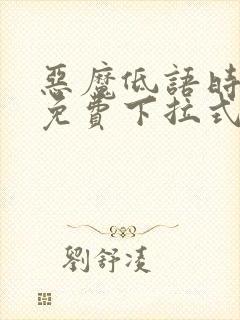 惡魔低語時
免費下拉式
劉舒凌